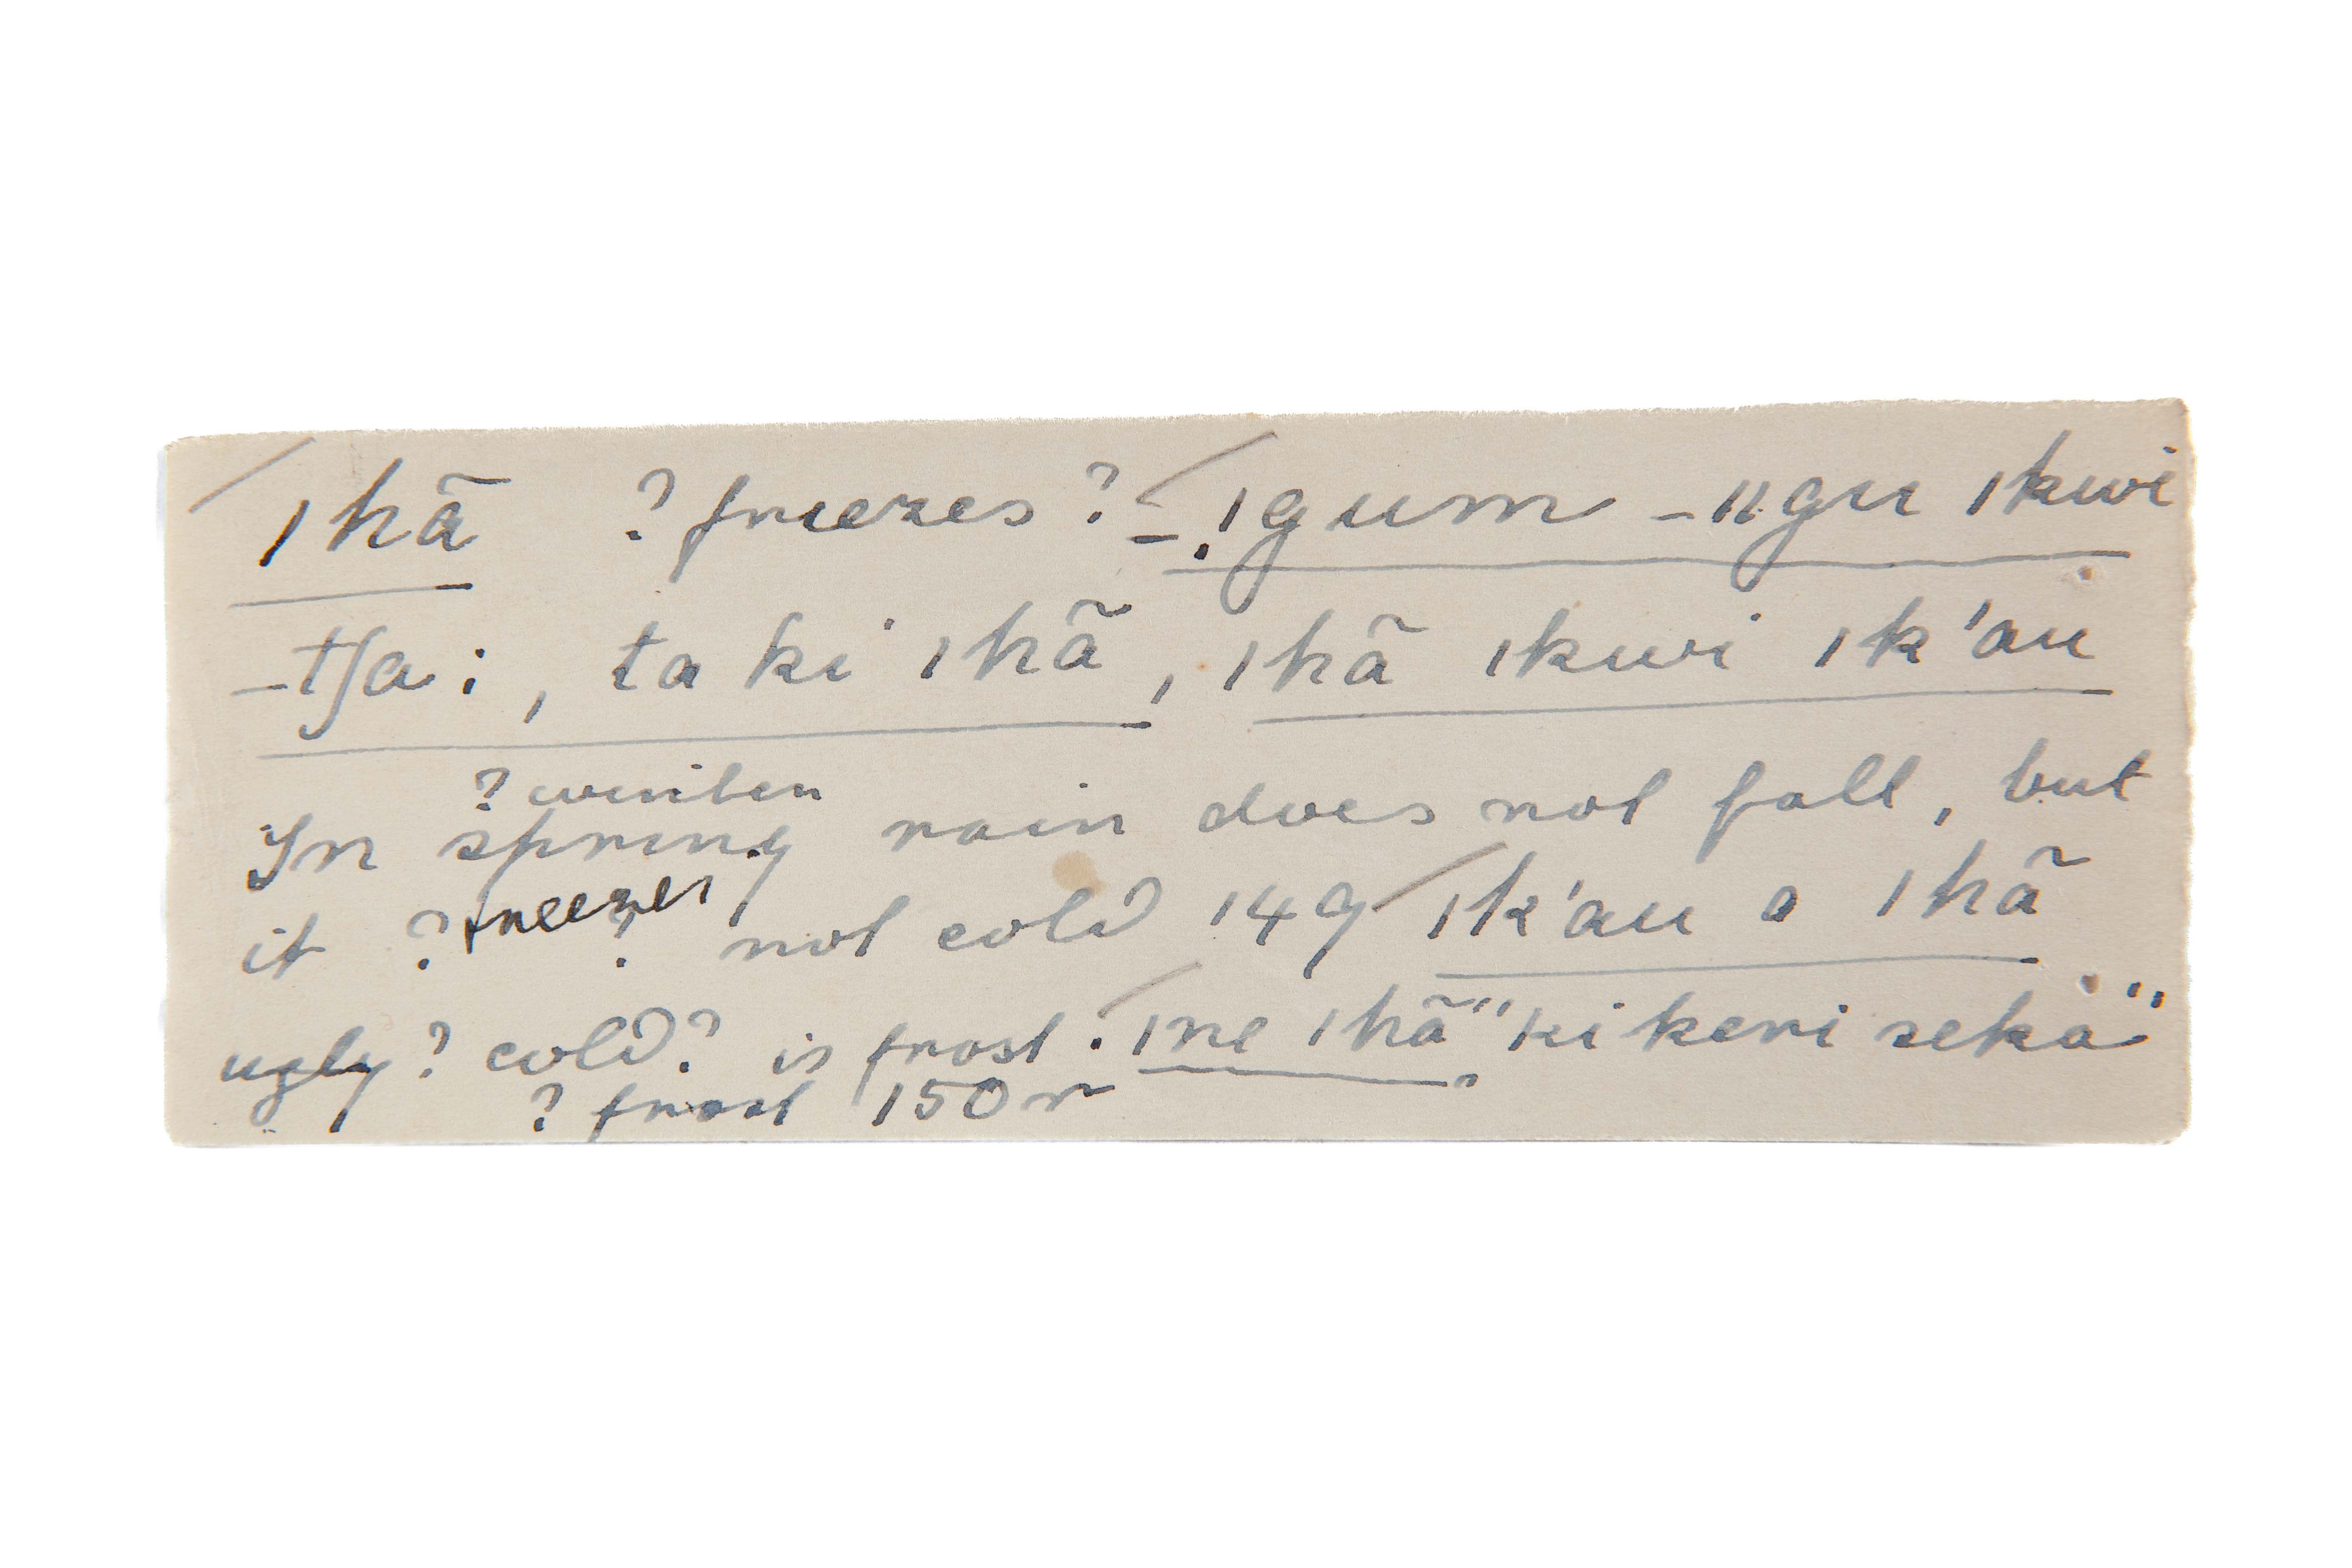 ǀhã ? freezes ? – !gum –ǁgu ǀkwi
–tʃa : , ta ki ǀhã , ǀhã ǀkwi ǀk'au
? winter
In spring rain does not fall, but
it ? freezes ? not cold 149 ǀk'au o ǀhã
ugly ? cold ? is frost . ǀne ǀhã " ki keri seka "
? frost 150 r